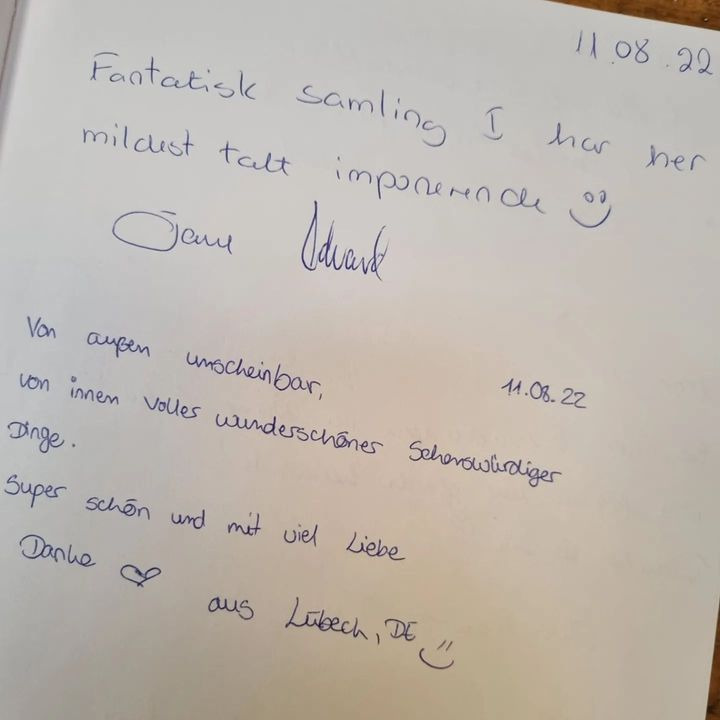 11.08.22
Fantatisk samling I har her
mildest talt imponerende
Von außen unscheinbar,
11.08.22
von innen volles wunderschöner Sehenswürdiger
Dinge.
Super schön und mit viel Liebe
Danke ♡
aus Lübeck, DE